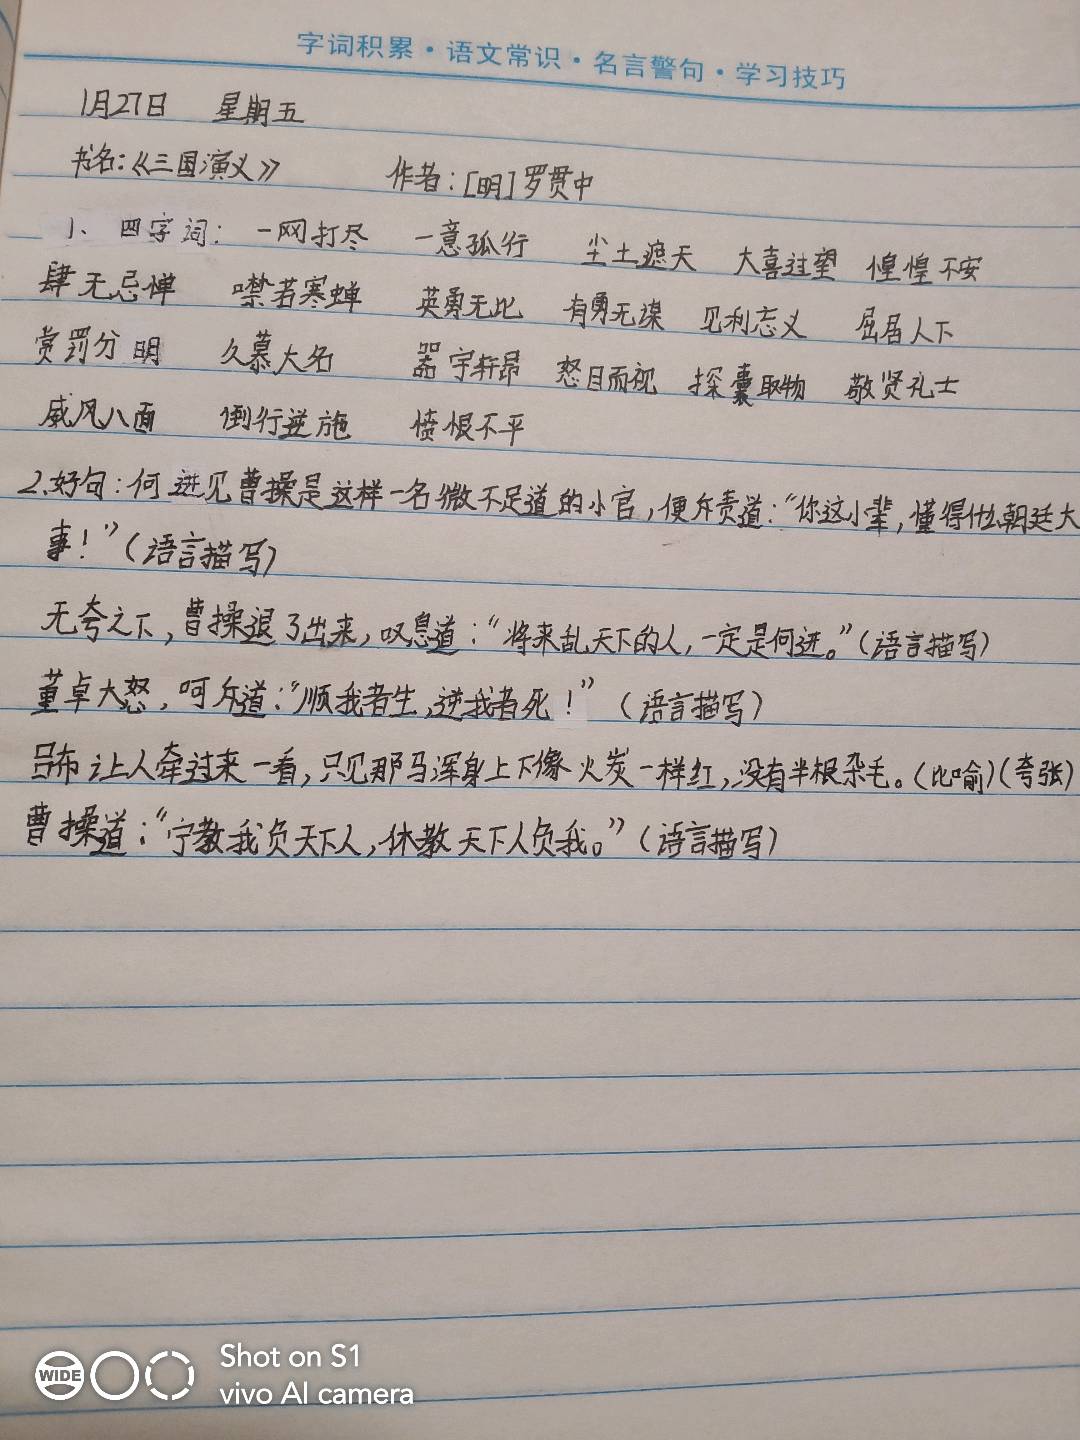 字词积累·语文常识·名言警句·学习技巧
1月27日 星期五
书名:《三国演义》 作者:[明]罗贯中
1、四字词: 一网打尽 一意孤行 尘土遮天 大喜过望 惶惶不安
肆无忌惮 噤若寒蝉 英勇无比 有勇无谋 见利忘义 屈居人下
赏罚分明 久慕大名 器宇轩昂 怒目而视 探囊取物 敬贤礼士
威风八面 倒行逆施 愤恨不平
2.好句:何进见曹操是这样一名微不足道的小官,便斥责道:“你这小辈,懂得什么朝廷大
事!”(语言描写)
无夸之下,曹操退了出来,叹息道:“将来乱天下的人,一定是何进。”(语言描写)
董卓大怒,呵斥道:“顺我者生,逆我者死!”(语言描写)
吕布让人牵过来一看,只见那马浑身上下像火炭一样红,没有半根杂毛。(比喻)(夸张)
曹操道:“宁教我负天下人,休教天下人负我。”(语言描写)
WIDE
Shot on S1
vivo AI camera